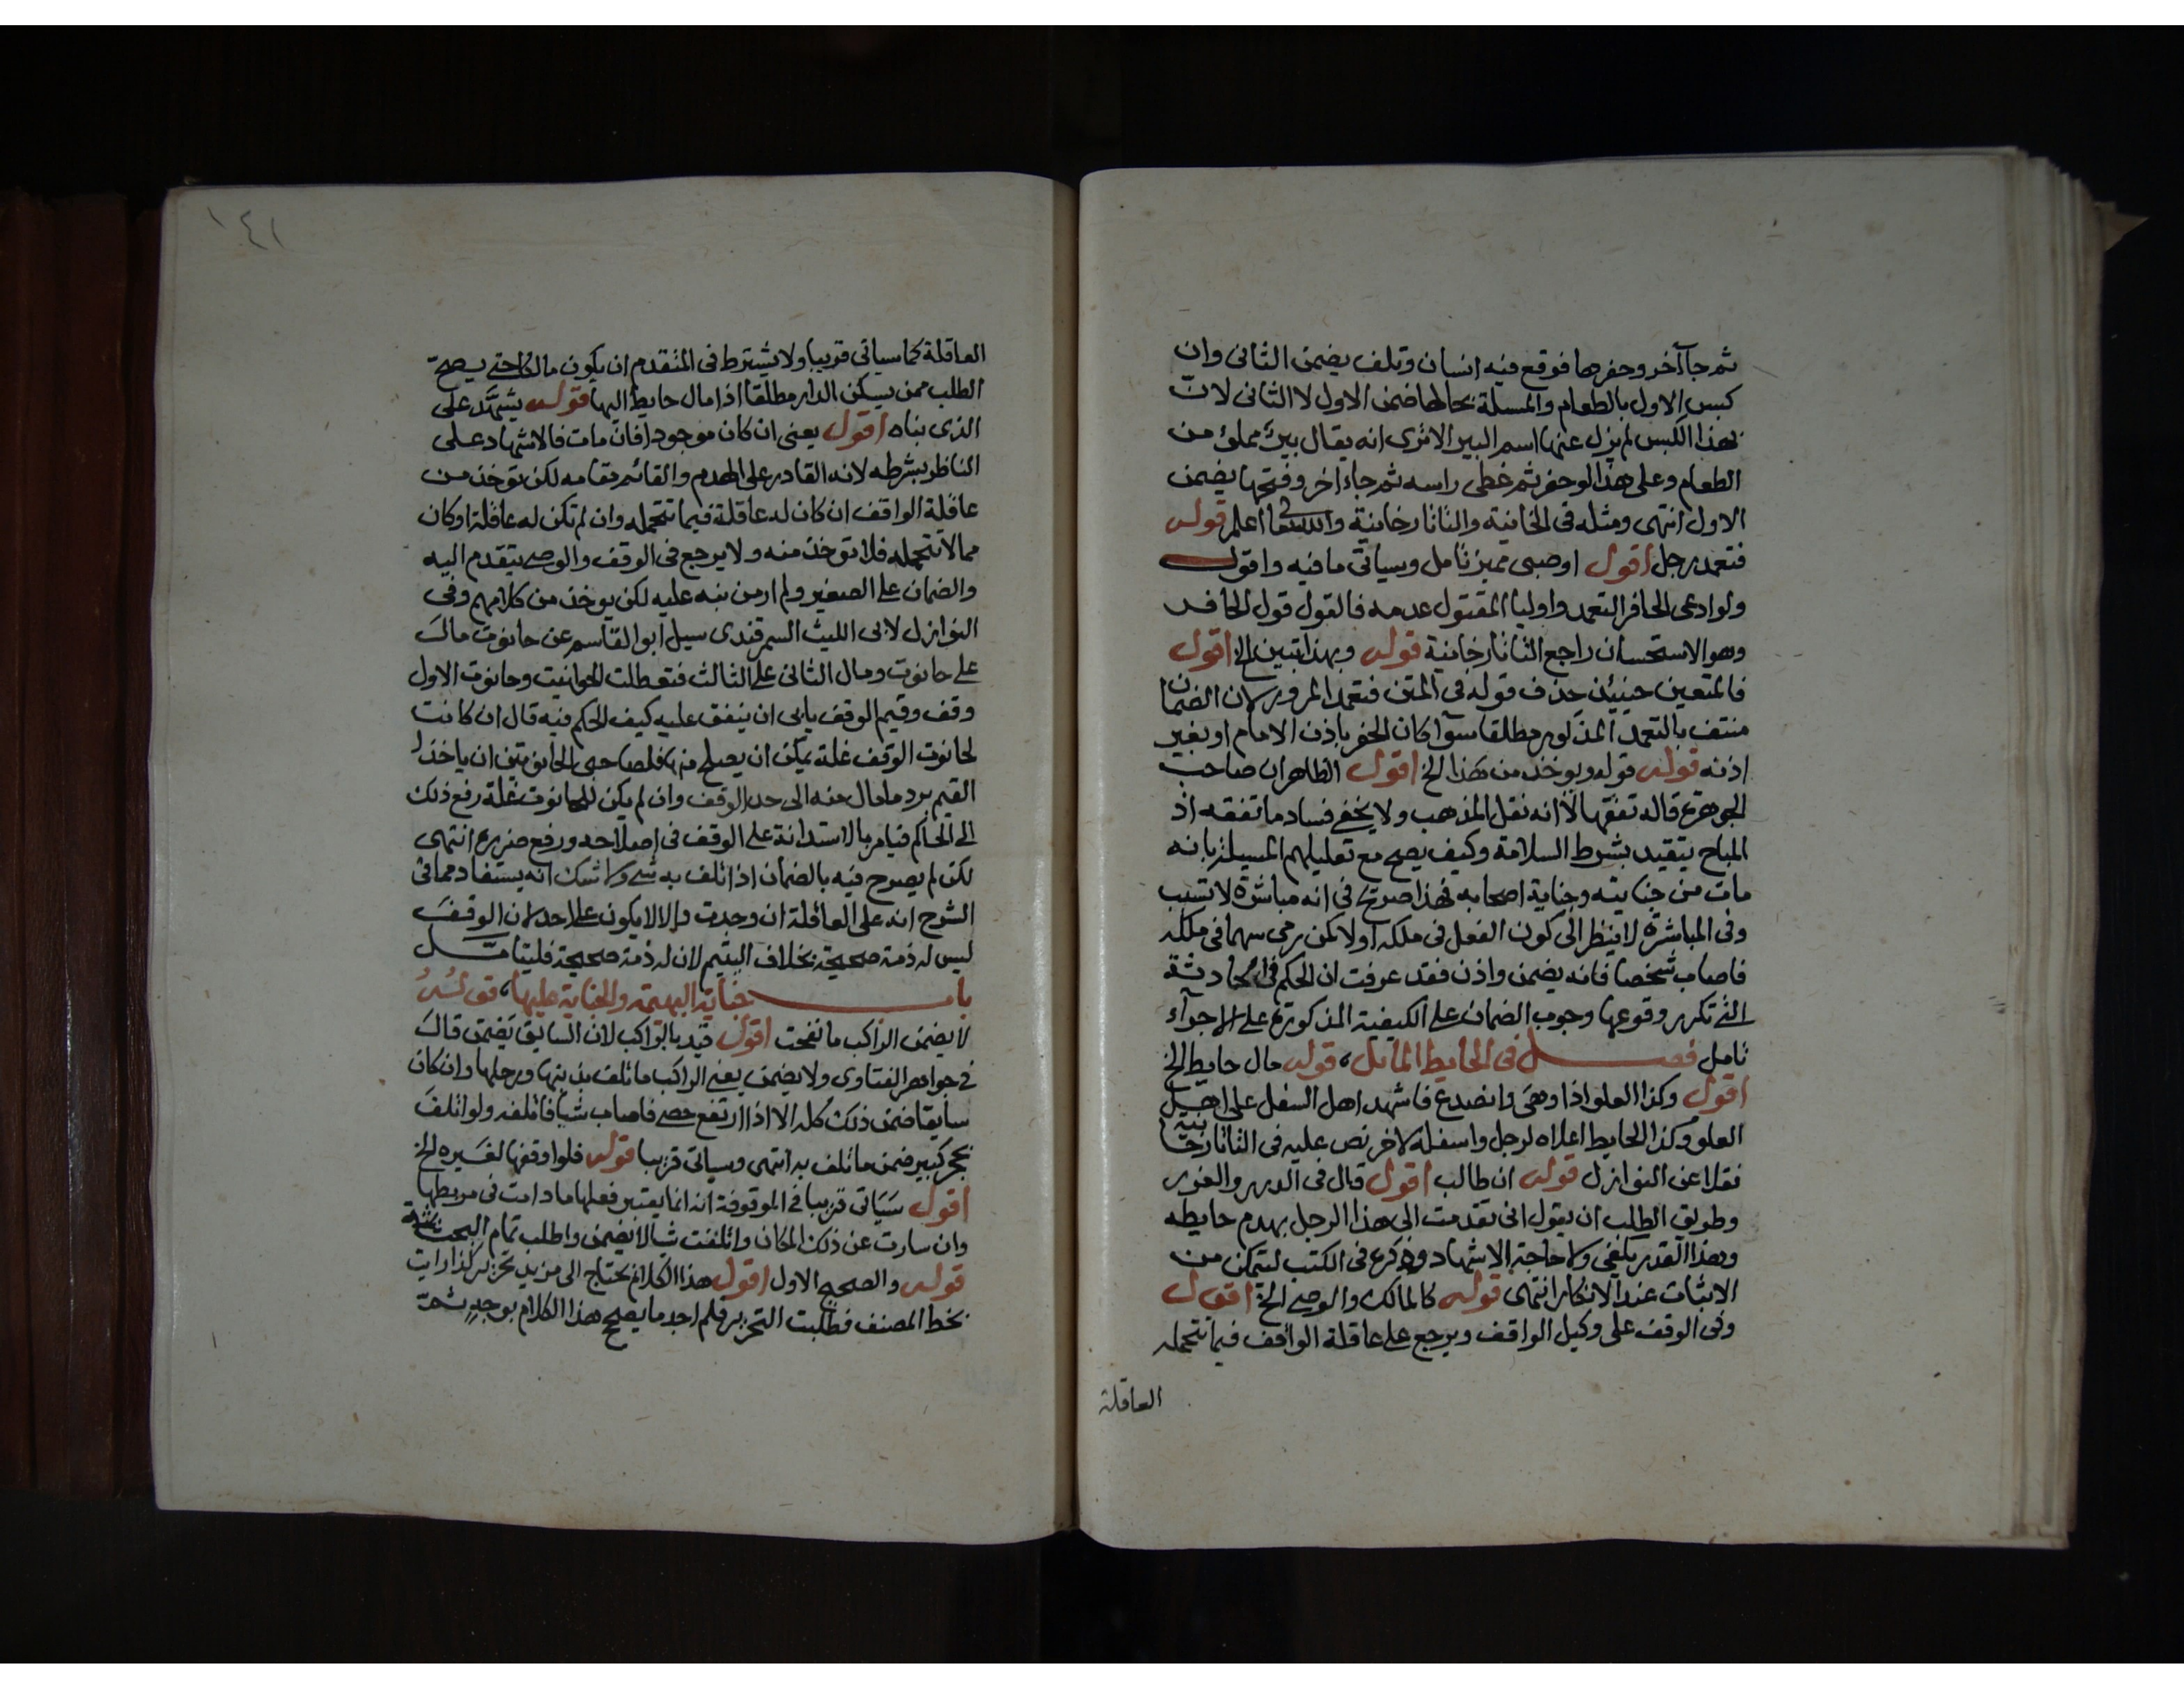 ثم جاآخر وحفرها فوقع فيه انسان وتلف يضمن الثانى وان
كبس الاول بالطعام والمسئلة بحالها ضمن الاول لا الثانى لان
بهذا الكبس لم يزل عنها اسم البير الا ترى انه يقال بير مملؤ من
الطعام وعلى هذا لو حفر ثم غطى راسه ثم جاء اخر وفتحها يضمن
الاول انتهى ومثله فى الخانية والتاتارخانية والله تعالى اعلم قوله
فتعمد رجل اقول او صبى مميز تامل وسياتى ما فيه واقول
ولو ادعى الحافر التعمد واوليا المقتول عدمه فالقول قول الحافر
وهو الاستحسان راجع التاتارخانية قوله وبهذا تبين الخ اقول
فالمتعين حينئذ حذف قوله فى المتن فتعمد المرور لان الضمان
منتف بالتعمد المذكور مطلقا سوآ كان الحفر باذن الامام او بغير
اذنه قوله قوله ويوخذ من هذا الخ اقول الظاهر ان صاحب
الجوهرة قاله تفقها لا انه نقل المذهب ولا يخفى فساد ما تفقه اذ
المباح يتقيد بشرط السلامة وكيف يصح مع تعليلهم المسيلة بانه
مات من جنايته وجناية اصحابه فهذا صريح فى انه مباشرة لا تسبب
وفى المباشرة لا ينظر الى كون الفعل فى ملكه اولا كمن رمى سهما فى ملكه
فاصاب شخصا فانه يضمن واذن فقد عرفت ان الحكم فى الحادثة
التى تكرر وقوعها وجوب الضمان على الكيفية المذكورة على الاجرآء
تامل فصل فى الحايط المايل، قوله مال حايط الخ
اقول وكذا العلو اذا وهى وانصدع فاشهد اهل السفل على اهل
العلو وكذا الحايط اعلاه لرجل واسفله لاخر نص عليه فى التاتارخانية
نقلا عن النوازل قوله ان طالب اقول قال فى الدرر والغرر
وطريق الطلب ان يقول انى تقدمت الى هذا الرجل بهدم حايطه
وهذا القدر يكفى ولا حاجة الاشهاد وذكره فى الكتب لتمكن من
الاثبات عند الانكار انتهى قوله كالمالك والوصى الخ اقول
وفى الوقف على وكيل الواقف ويرجع على عاقلة الواقف فيما تتحمله
العاقلة
١٤١
العاقلة كما سياتى قريبا ولا يشترط فى المتقدم ان يكون مالكا حتى يصح
الطلب ممن يسكن الدار مطلقا اذا مال حايط اليها قوله يشهد على
الذى بناه اقول يعنى ان كان موجودا فان مات فالاشهاد على
الناظر بشرطه لانه القادر على الهدم والقائم مقامه لكن توخذ من
عاقلة الواقف ان كان له عاقلة فيما تتحمله وان لم تكن له عاقلة او كان
مما لا تتحمله فلا توخذ منه ولا يرجع فى الوقف والوصى يتقدم اليه
والضمان على الصغير ولم ار من نبه عليه لكن يوخذ من كلامهم وفى
النوازل لابى الليث السمرقندى سيل ابو القاسم عن حانوت مال
على حانوت ومال الثانى على الثالث فتعطلت الحوانيت وحانوت الاول
وقف وقيم الوقف يابى ان ينفق عليه كيف الحكم فيه قال ان كانت
لحانوت الوقف غلة يمكن ان يصلح منها فلصاحبى الحانوتين ان ياخذا
القيم برد ما مال منه الى حد الوقف وان لم يكن للحانوت غلة رفع ذلك
الى الحاكم فيامر بالاستدانة على الوقف فى اصلاحه ورفع ضرره انتهى
لكن لم يصرح فيه بالضمان اذا تلف به شى ولا شك انه يستفاد مما فى
الشرح انه على العاقلة ان وجدت والا لا يكون على احد لان الوقف
ليس له ذمة صحيحة بخلاف اليتيم لان له ذمة صحيحة فليتامل
باب جناية البهيمة والجناية عليها، قوله
لا يضمن الراكب ما نفحت اقول قيد بالراكب لان السايق يضمن قال
فى جواهر الفتاوى ولا يضمن يعنى الراكب ما تلف بذنبها ورجلها وان كان
سايقا ضمن ذلك كله الا اذا ارتفع حصى فاصاب شيأ فاتلفه ولو اتلف
بحجر كبير ضمن ما تلف به انتهى وسياتى قريبا قوله فلو اوقفها لغيره الخ
اقول سياتى قريبا فى الموقوفة انه انما يعتبر فعلها ما دامت فى مربطها
وان سارت عن ذلك المكان واتلفت شيالا يضمن واطلب تمام البحث ثمة
قوله والصحيح الاول اقول هذا الكلام يحتاج الى مزيد تحرير كذا رايت
بخط المصنف فطلبت التحرير فلم اجد ما يصحح هذا الكلام بوجه ثمة